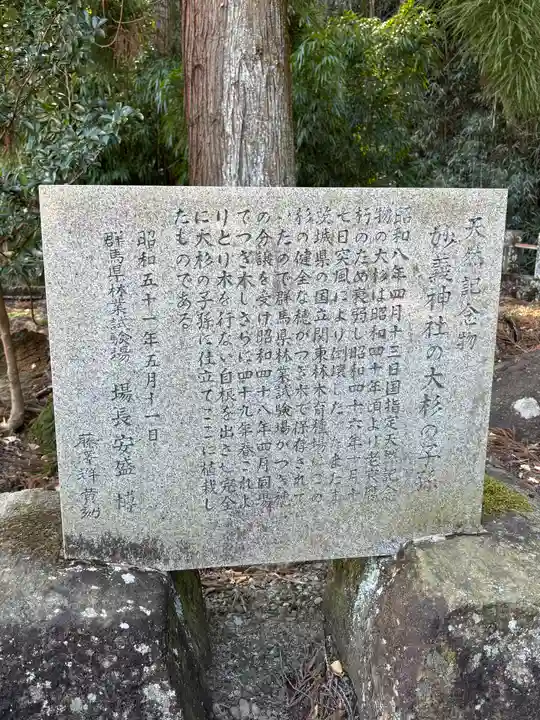 天然記念物
妙義神社の大杉の子孫
昭和八年四月十三日国指定天然記念
物の大杉は昭和四十年頃より老衰
行のため衰弱し昭和四十六年一月十
七日突風により倒壊した たまたま
茨城県の国立関東林木育種場にこの
杉の健全な穂がつぎ木で保存されて
いたので群馬県林業試験場がつぎ穂
の分譲を受け昭和四十八年四月同場
でつぎ木しさらに四十九年春これよ
りとり木を行ない自根を出させ完全
に大杉の子孫に仕立てここに植栽し
たものである
昭和五十一年五月十一日
群馬県林業試験場 場長 安盛 博